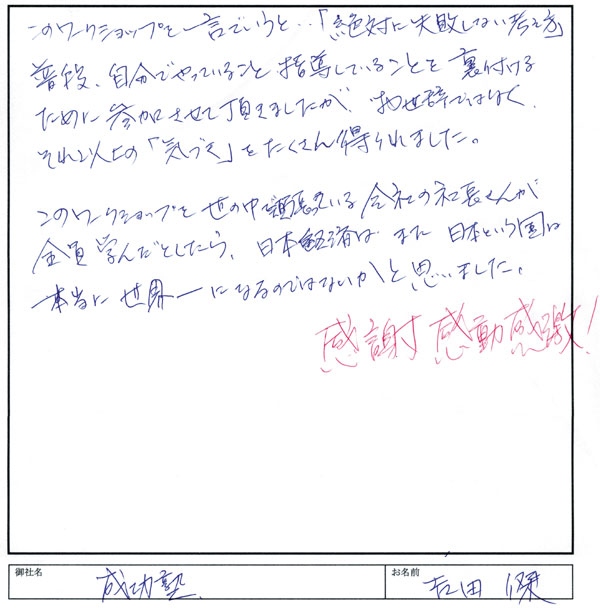 このワークショップを一言でいうと…「絶対に失敗しない考え方」
普段、自分でやっていること指導していることを裏付ける
ために参加させて頂きましたが、お世辞ではなく、
それ以上の「気づき」をたくさん得られました。
このワークショップを世の中で頑張っている会社の社長さんが
全員学んだとしたら、日本経済は、また日本という国は
本当に世界一になるのではないかと思いました。
感謝感動感激!
御社名
成功塾
お名前
吉田